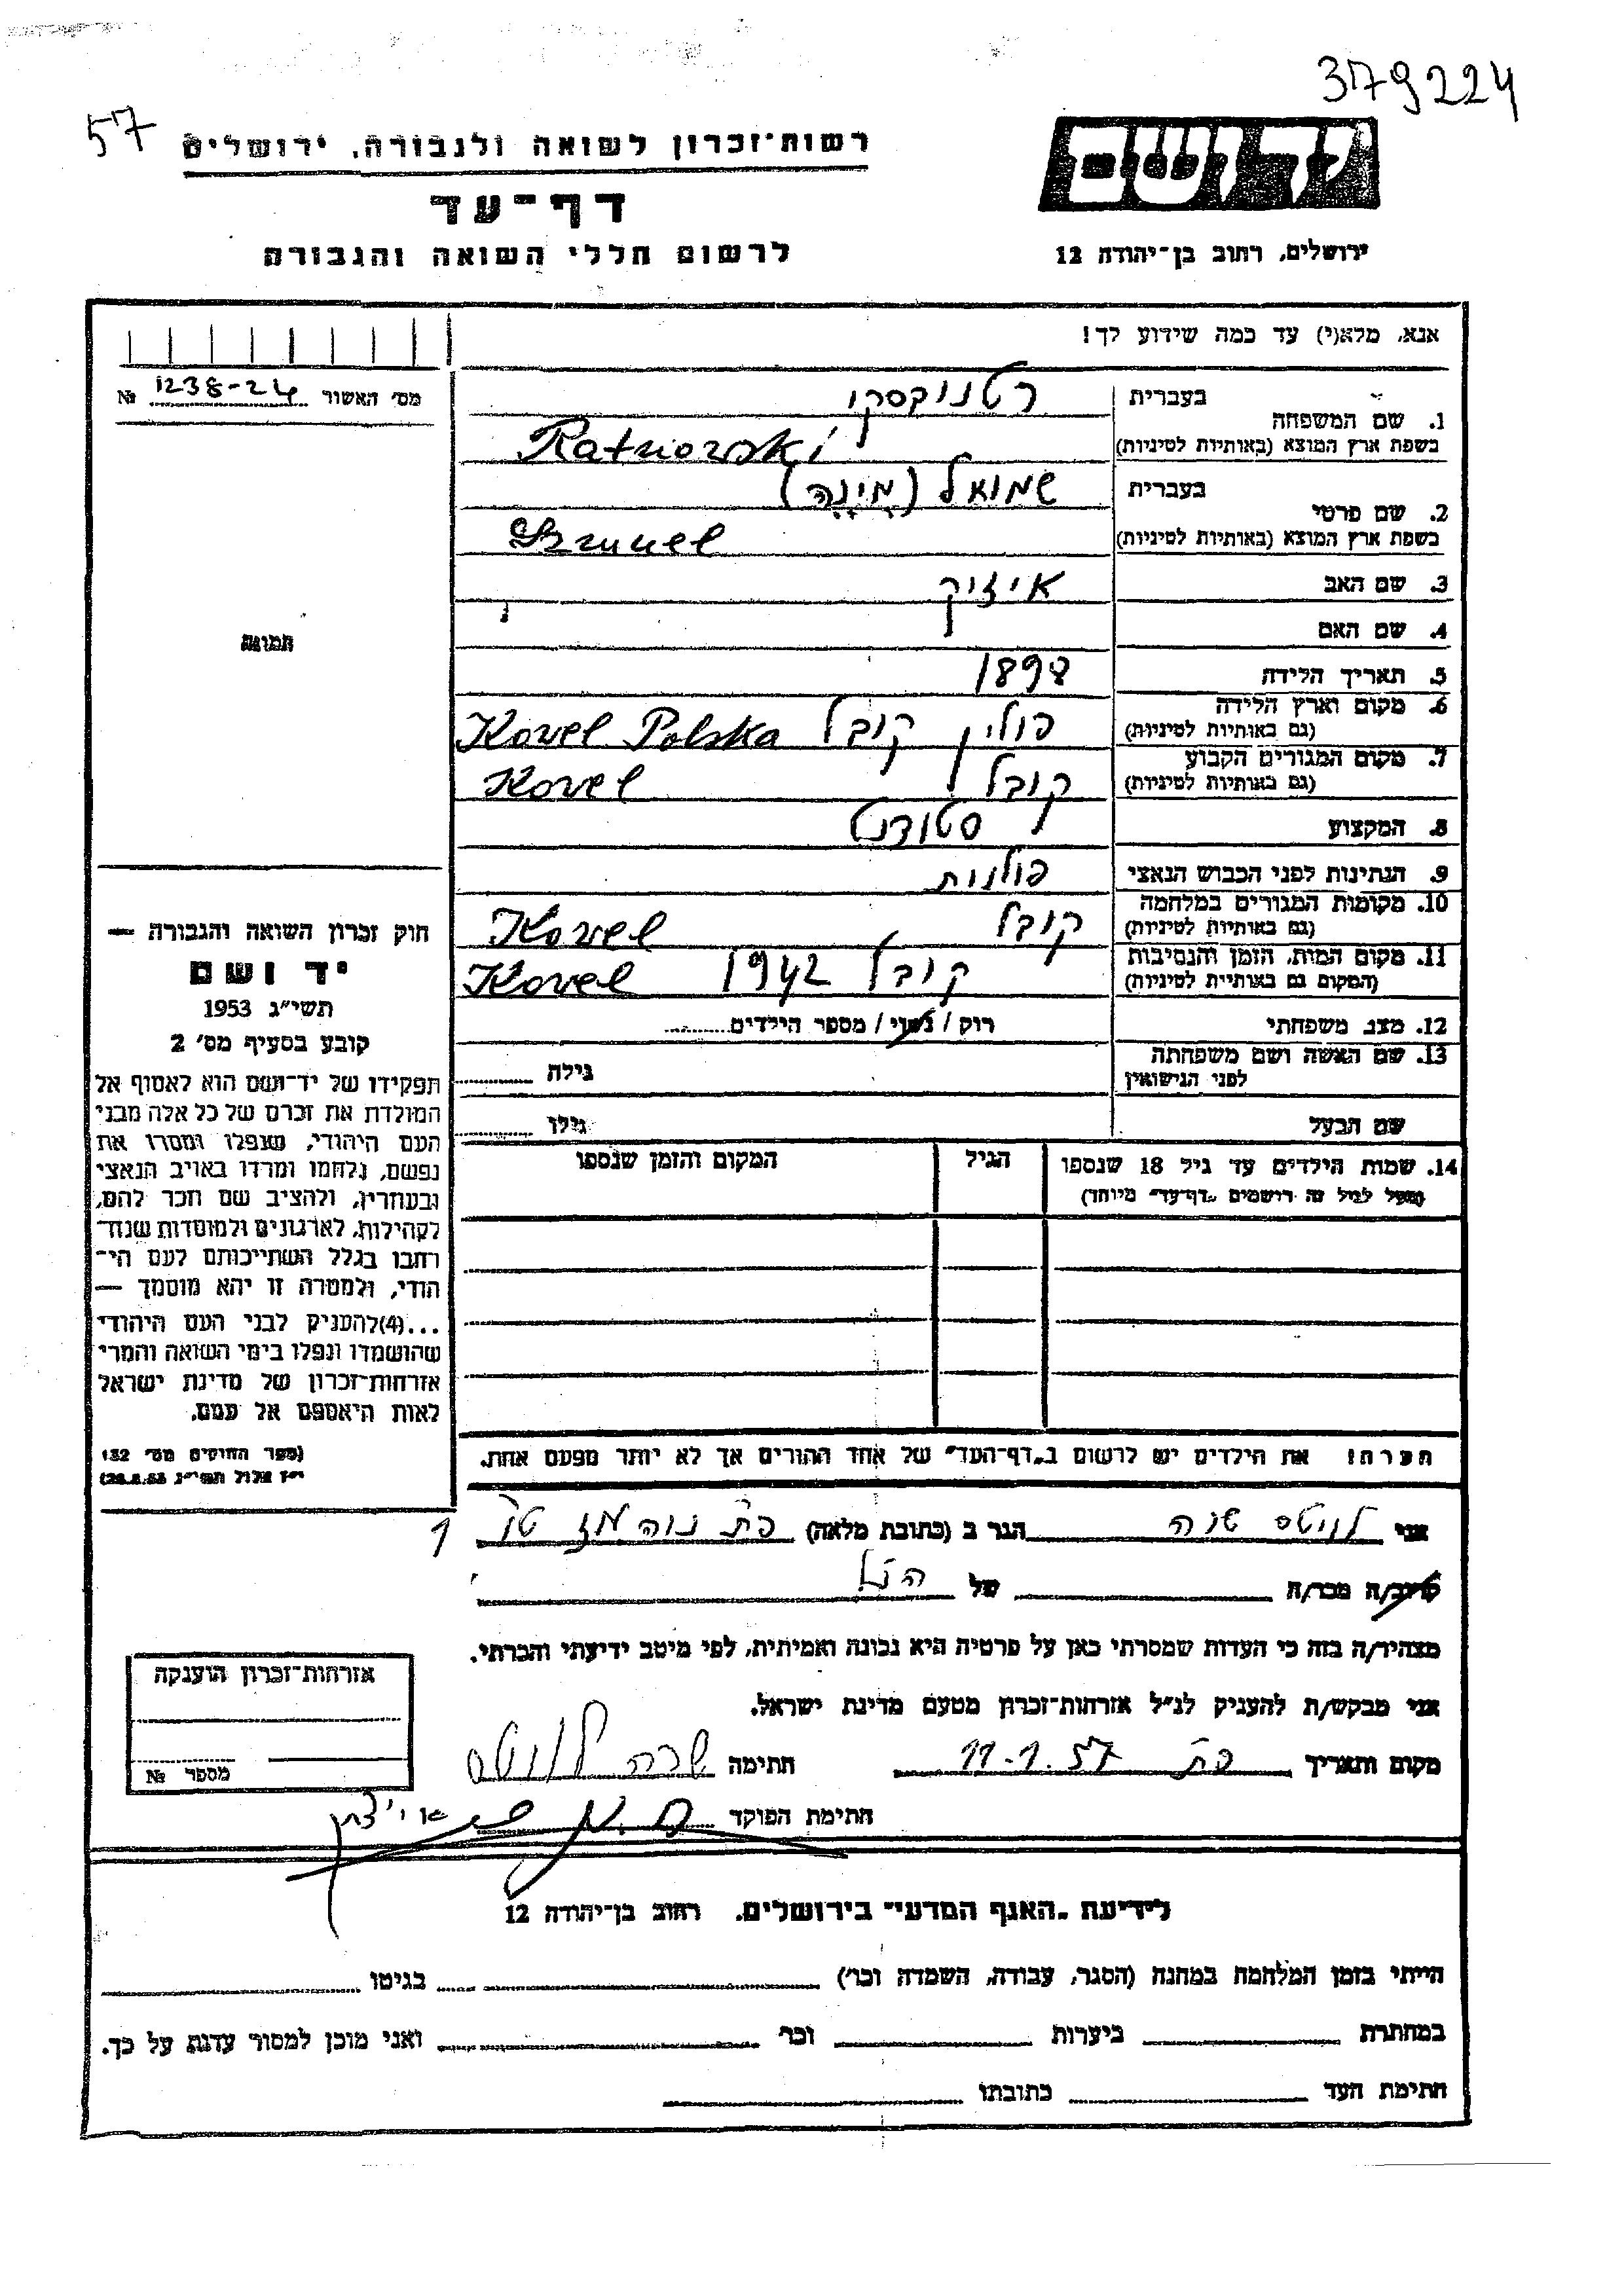 379224
57
רשות־זכרון לשואה ולגבורה, ירושלים
דף־עד
לרשום חללי השואה והגבורה
יד ושם
ירושלים, רחוב בן־יהודה 12
אנא, מלא(י) עד כמה שידוע לך!
מס׳ האשור 1238-24 №
1. שם המשפחה
בעברית רטנובסקי
בשפת ארץ המוצא (באותיות לטיניות) Ratnovski
2. שם פרטי
בעברית שמואל (מינה)
בשפת ארץ המוצא (באותיות לטיניות) Szmuel
3. שם האב איזיק
4. שם האם
5. תאריך הלידה 1898
6. מקום וארץ הלידה
(גם באותיות לטיניות) פולין קובל Kovel Polska
7. מקום המגורים הקבוע
(גם באותיות לטיניות) קובל Kovel
8. המקצוע סטודנט
9. הנתינות לפני הכבוש הנאצי פולנית
10. מקומות המגורים במלחמה
(גם באותיות לטיניות) קובל Kovel
11. מקום המות, הזמן והנסיבות
(המקום גם באותיית לטיניות) קובל 1942 Kovel
12. מצב משפחתי רוק / נשוי / מספר הילדים
13. שם האשה ושם משפחתה
לפני הנישואין גילה
שם הבעל גילו
14. שמות הילדים עד גיל 18 שנספו הגיל המקום והזמן שנספו
(מעל לגיל זה רושמים „דף־עד״ מיוחד)
הערה! את הילדים יש לרשום ב„דף־העד״ של אחד ההורים אך לא יותר מפעם אחת.
תמונה
חוק זכרון השואה והגבורה —
יד ושם
תשי״ג 1953
קובע בסעיף מס׳ 2
תפקידו של יד־ושם הוא לאסוף אל
המולדת את זכרם של כל אלה מבני
העם היהודי, שנפלו ומסרו את
נפשם, נלחמו ומרדו באויב הנאצי
ובעוזריו, ולהציב שם וזכר להם,
לקהילות, לארגונים ולמוסדות שנח־
רבו בגלל השתייכותם לעם הי־
הודי, ולמטרה זו יהא מוסמך —
...(4)להעניק לבני העם היהודי
שהושמדו ונפלו בימי השואה והמרי
אזרחות־זכרון של מדינת ישראל
לאות היאספם אל עמם.
(ספר החוקים מס׳ 132
י״ז אלול תשי״ג, 28.8.53)
אני לויטס שרה הגר ב (כתובת מלאה)
קרוב/ה מכר/ה של הנ״ל
מצהיר/ה בזה כי העדות שמסרתי כאן על פרטיה היא נכונה ואמיתית, לפי מיטב ידיעתי והכרתי.
אני מבקש/ת להעניק לנ״ל אזרחות־זכרון מטעם מדינת ישראל.
מקום ותאריך 11-1.57 חתימה שרה לויטס
חתימת הפוקד
אזרחות־זכרון הוענקה
מספר №
לידיעת „האגף המדעי״ בירושלים, רחוב בן־יהודה 12
הייתי בזמן המלחמה במחנה (הסגר, עבודה, השמדה וכו׳) בגיטו
במחתרת ביערות וכו׳ ואני מוכן למסור עדות על כך.
חתימת העד כתובתו